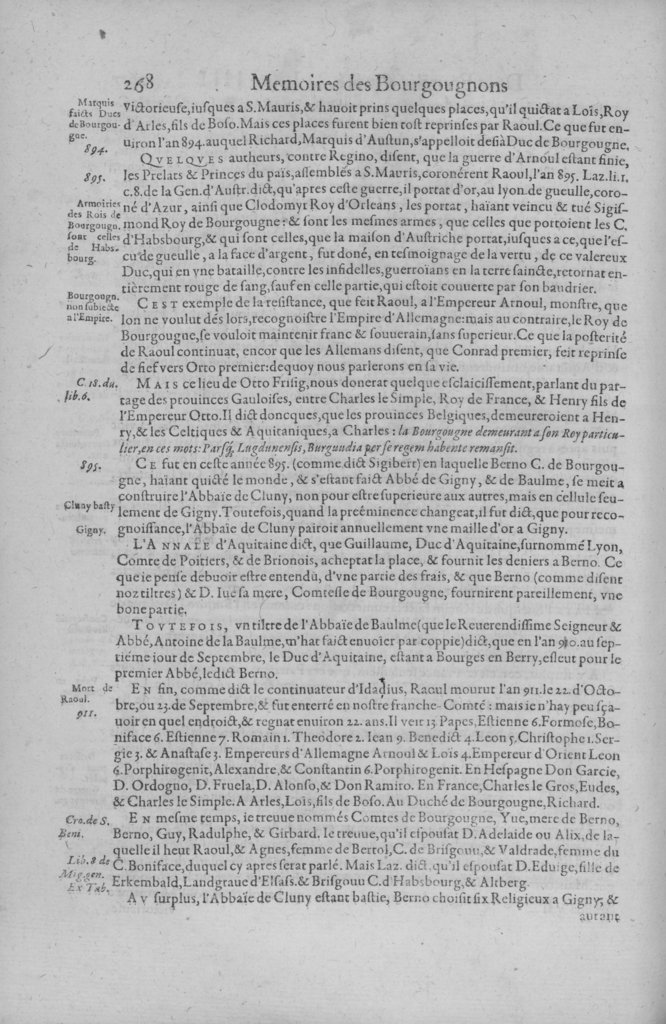 268 Memoires des Bourgougnons
Marquis
faicts Ducs
de Bourgou-
gne.
894.
victorieuse,iusques a S.Mauris,& hauoit prins quelques places,qu'il quictat a Loïs,Roy
d'Arles,fils de Boso.Mais ces places furent bien tost reprinses par Raoul.Ce que fut en-
uiron l'an 894.auquel Richard,Marquis d'Austun,s'appelloit desià Duc de Bourgougne.
QVELQVES autheurs, contre Regino, disent, que la guerre d'Arnoul estant finie,
895.
les Prelats & Princes du païs,assemblés a S.Mauris,coronérent Raoul,l'an 895. Laz.li.1.
c.8.de la Gen.d'Austr.dict,qu'apres ceste guerre,il portat d'or,au lyon de gueulle,coro-
Armoiries
des Rois de
Bourgougn.
sont celles
de Habs-
bourg.
né d'Azur, ainsi que Clodomyr Roy d'Orleans, les portat, haïant veincu & tué Sigis-
mond Roy de Bourgougne: & sont les mesmes armes, que celles que portoient les C.
d'Habsbourg,& qui sont celles,que la maison d'Austriche portat,iusques a ce,que l'es-
cu de gueulle, a la face d'argent, fut doné, en tesmoignage de la vertu, de ce valereux
Duc,qui en vne bataille,contre les infidelles,guerroïans en la terre saincte,retornat en-
tièrement rouge de sang,sauf en celle partie,qui estoit couuerte par son baudrier.
Bourgougn.
non subiecte
a l'Empire.
CEST exemple de la resistance, que feit Raoul, a l'Empereur Arnoul, monstre, que
lon ne voulut dés lors,recognoistre l'Empire d'Allemagne:mais au contraire,le Roy de
Bourgougne,se vouloit maintenir franc & souuerain,sans superieur.Ce que la posterité
de Raoul continuat, encor que les Allemans disent, que Conrad premier, feit reprinse
de fief vers Otto premier:dequoy nous parlerons en sa vie.
C.18.du.
lib.6.
MAIS ce lieu de Otto Frisig,nous donerat quelque esclaicissement,parlant du par-
tage des prouinces Gauloises, entre Charles le Simple, Roy de France, & Henry fils de
l'Empereur Otto.Il dict doncques,que les prouinces Belgiques,demeureroient a Hen-
ry,& les Celtiques & Aquitaniques,a Charles: la Bourgougne demeurant a son Roy particu-
lier,en ces mots: Parsq̃, Lugdunensis, Burgundia per se regem habente remansit.
895.
CE fut en ceste année 895. (comme dict Sigibert) en laquelle Berno C. de Bourgou-
gne, haïant quicté le monde, & s'estant faict Abbé de Gigny, & de Baulme, se meit a
construire l'Abbaïe de Cluny, non pour estre superieure aux autres,mais en cellule seu-
Cluny basty
Gigny.
lement de Gigny.Toutefois,quand la preéminence changeat,il fut dict,que pour reco-
gnoissance,l'Abbaïe de Cluny pairoit annuellement vne maille d'or a Gigny.
L'ANNALE d'Aquitaine dict, que Guillaume, Duc d'Aquitaine,surnommé Lyon,
Comte de Poitiers, & de Brionois, acheptat la place, & fournit les deniers a Berno. Ce
que ie pense debuoir estre entendu, d'vne partie des frais, & que Berno (comme disent
noz tiltres) & D. Iue sa mere, Comtesse de Bourgougne, fournirent pareillement, vne
bone partie.
TOVTEFOIS, vn tiltre de l'Abbaïe de Baulme(que le Reuerendissime Seigneur &
Abbé,Antoine de la Baulme,m'hat faict enuoïer par coppie)dict,que en l'an 910.au sep-
tiéme iour de Septembre, le Duc d'Aquitaine, estant a Bourges en Berry,esleut pour le
premier Abbé,ledict Berno.
Mort de
Raoul.
911.
EN fin, comme dict le continuateur d'Idacius, Raoul mourut l'an 911.le 22.d'Octo-
bre,ou 23.de Septembre,& fut enterré en nostre franche-Comté: mais ie n'hay peu sça-
uoir en quel endroict,& regnat enuiron 22. ans.Il veit 13 Papes,Estienne 6.Formose,Bo-
niface 6. Estienne 7. Romain 1. Theodore 2. Iean 9. Benedict 4. Leon 5. Christophe 1. Ser-
gie 3. & Anastase 3. Empereurs d'Allemagne Arnoul & Loïs 4.Empereur d'Orient Leon
6.Porphirogenit,Alexandre,& Constantin 6.Porphirogenit. En Hespagne Don Garcie,
D. Ordogno, D. Fruela, D. Alonso,& Don Ramiro. En France,Charles le Gros,Eudes,
& Charles le Simple. A Arles,Loïs,fils de Boso.Au Duché de Bourgougne,Richard.
Cro.de S.
Beni.
EN mesme temps, ie treuue nommés Comtes de Bourgougne, Yue,mere de Berno,
Berno, Guy, Radulphe, & Girbard. Ie treuue,qu'il espousat D.Adelaide ou Alix,de la-
quelle il heut Raoul,& Agnes,femme de Bertol,C.de Brisgouu,& Valdrade,femme du
Lib.8 de
Mig.gen.
Ex Tab.
C.Boniface,duquel cy apres serat parlé. Mais Laz. dict,qu'il espousat D.Eduige,fille de
Erkembald,Landgraue d'Elsass.& Brisgouu C.d'Habsbourg,& Altberg.
AV surplus,l'Abbaïe de Cluny estant bastie, Berno choisit six Religieux a Gigny, &
autant